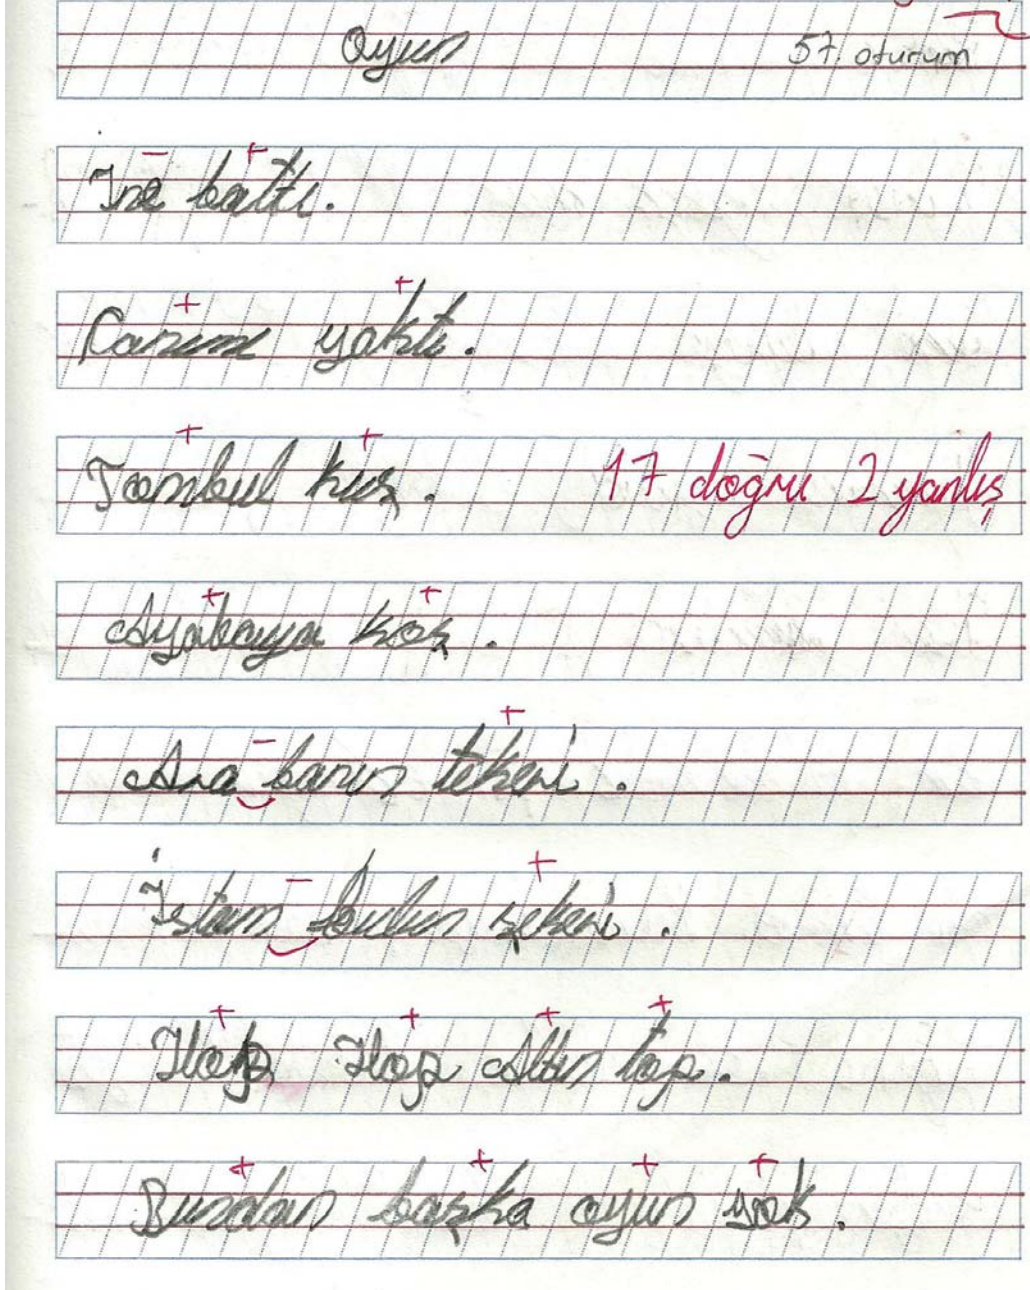 Oyun 57. oturum
İne battı.
Canımı yaktı.
Tombul kuş. 17 doğru 2 yanlış
Ayabaya koş.
Ara banın tekeri.
İstan bulun şekeri.
Hop Hop Altın top.
Bundan başka oyun yok.